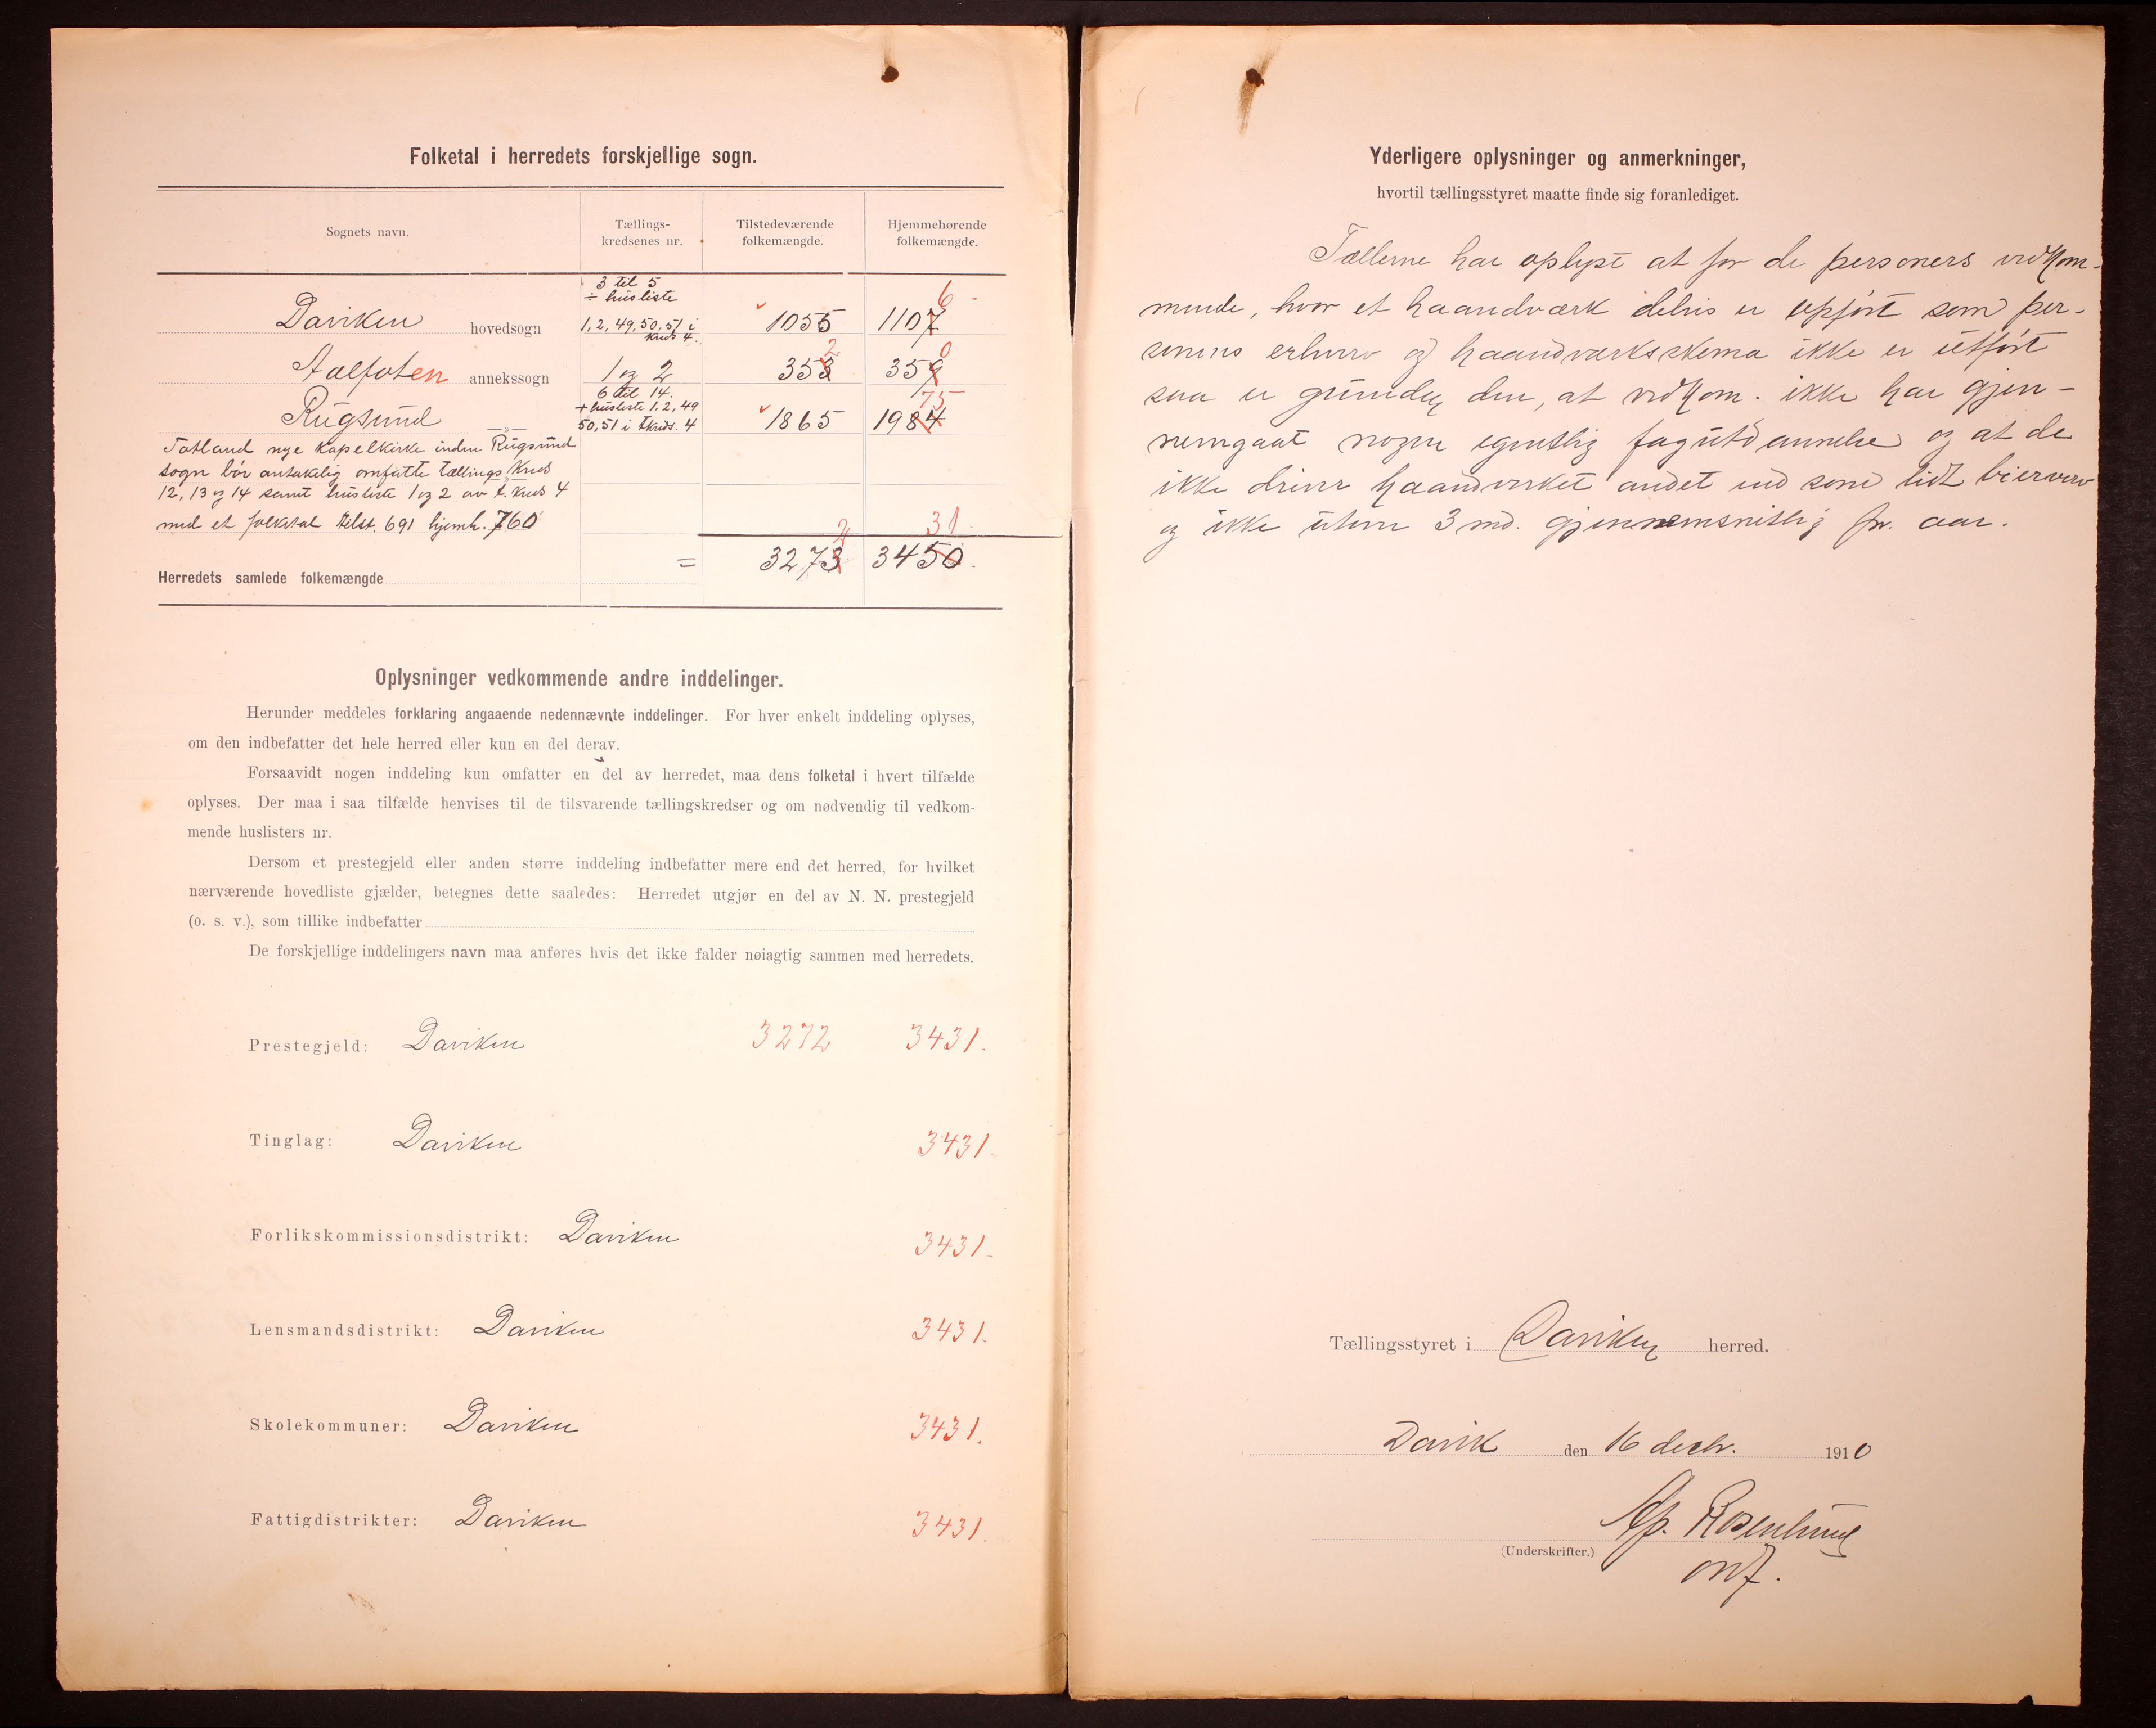 Folketal i herredets forskjellige sogn.
Sognets navn.
Tællings-
kredsenes nr.
Tilstedeværende
folkemængde.
Hjemmehørende
folkemængde.
3 til 5
÷ husliste
6
Daviken hovedsogn 1, 2, 49, 50, 51 i 1055 1107
Kreds 4.
2 0
Aalfoten annekssogn 1 og 2 353 359
6 til 14. 75
+ husliste 1, 2, 49
Rugsund —„— 50, 51 i tkreds. 4 1865 1984
Totland nye Kapelkirke inden Rugsund
sogn bør antakelig omfatte tællings Kreds
12, 13 og 14 samt husliste 1 og 2 av t. kreds 4
med et folketal tilst. 691 hjemh. 760
2 31
Herredets samlede folkemængde = 3273 3450.
Oplysninger vedkommende andre inddelinger.
Herunder meddeles forklaring angaaende nedennævnte inddelinger. For hver enkelt inddeling oplyses,
om den indbefatter det hele herred eller kun en del derav.
Forsaavidt nogen inddeling kun omfatter en del av herredet, maa dens folketal i hvert tilfælde
oplyses. Der maa i saa tilfælde henvises til de tilsvarende tællingskredser og om nødvendig til vedkom-
mende huslisters nr.
Dersom et prestegjeld eller anden større inddeling indbefatter mere end det herred, for hvilket
nærværende hovedliste gjælder, betegnes dette saaledes: Herredet utgjør en del av N. N. prestegjeld
(o. s. v.), som tillike indbefatter
De forskjellige inddelingers navn maa anføres hvis det ikke falder nøiagtig sammen med herredets.
Prestegjeld: Daviken 3272 3431.
Tinglag: Daviken 3431.
Forlikskommissionsdistrikt: Daviken 3431.
Lensmandsdistrikt: Daviken 3431.
Skolekommuner: Daviken 3431.
Fattigdistrikter: Daviken 3431.
Yderligere oplysninger og anmerkninger,
hvortil tællingsstyret maatte finde sig foranlediget.
Tællerne har oplyst at for de personers vedkom-
mende, hvor et haandværk delvis er opført som per-
sonens erhverv og haandværksskema ikke er utført
saa er grunden den, at vedkom. ikke har gjen-
nemgaat nogen egentlig faguddannelse og at de
ikke driver haandverket andet end som lidt bierverv
og ikke utover 3 md. gjennemsnitlig pr. aar.
Tællingsstyret i Daviken herred.
Davik den 16 decbr. 1910
Ap. Rosenlund
(Underskrifter.)
ordf.